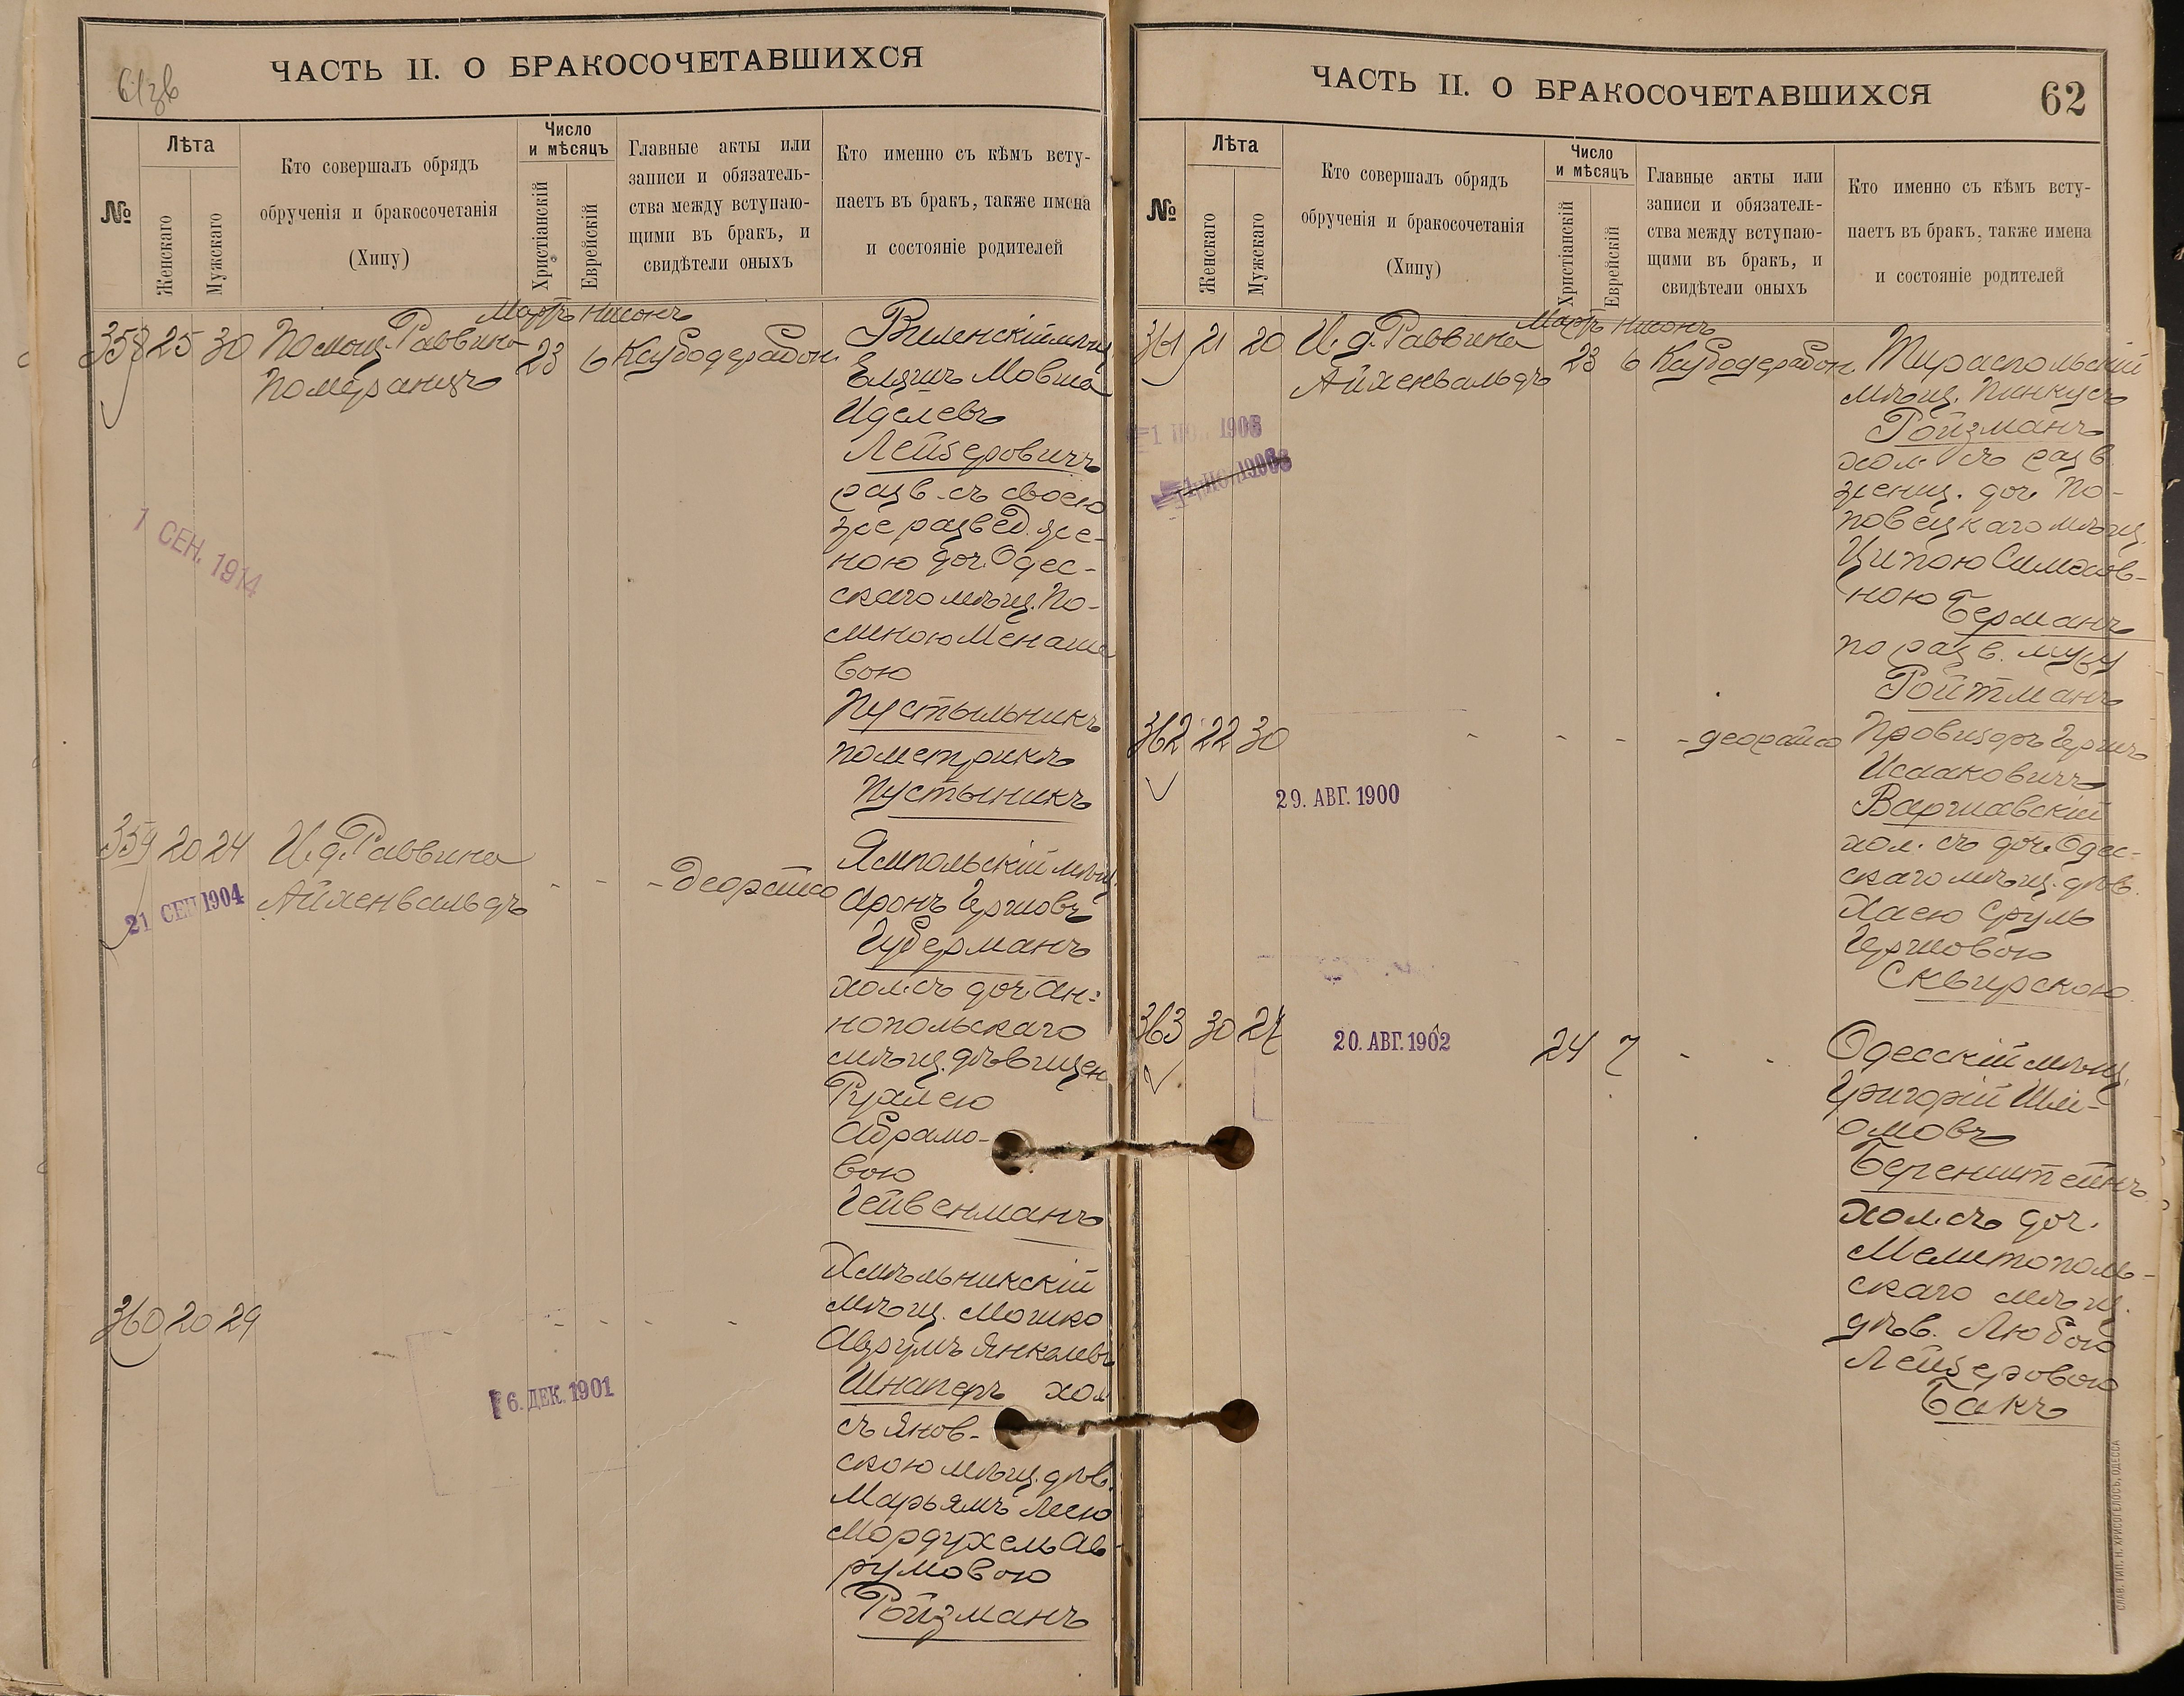 61зв
ЧАСТЬ II. О БРАКОСОЧЕТАВШИХСЯ
№
Лѣта
Женскаго
Мужскаго
Кто совершалъ обрядъ
обрученія и бракосочетанія
(Хипу)
Число
и мѣсяцъ
Христіанскій
Еврейскій
Главные акты или
записи и обязатель-
ства между вступаю-
щими въ бракъ, и
свидѣтели оныхъ
Кто именно съ кѣмъ всту-
паетъ въ бракъ, также имена
и состояніе родителей
Мартъ Нисонъ
358 25 30 Помощ. Раввина 23 6
Померанцъ
Виленскій мѣщ.
Мовша
Иделевъ
Лейзеровичъ
разв. съ своею
же развед. же-
ною доч. Одес-
скаго мѣщ.
вою
Пустыльникъ
по метрикѣ
Пустыникъ
1 СЕН. 1914
359 20 24 И. д. Раввина - - -
Айхенвальдъ
21 СЕН 1904
Ямпольскій мѣщ.
Аронъ Гершовъ
Губерманъ
хол. съ доч. Ан-
нопольскаго
мѣщ. дѣвицею
Рухлею
Абрамо-
вою
Гейвенманъ
360 20 29 - - - -
16. ДЕК. 1901
Хмѣльникскій
мѣщ. Мошко
Аврумъ Янкелевъ
Шнаперъ хол
съ Янов-
скою мѣщ. дѣв.
Марьямъ Леею
Мордухель Ав-
румовою
Ройзманъ
ЧАСТЬ II. О БРАКОСОЧЕТАВШИХСЯ
62
№
Лѣта
Женскаго
Мужскаго
Кто совершалъ обрядъ
обрученія и бракосочетанія
(Хипу)
Число
и мѣсяцъ
Христіанскій
Еврейскій
Главные акты или
записи и обязатель-
ства между вступаю-
щими въ бракъ, и
свидѣтели оныхъ
Кто именно съ кѣмъ всту-
паетъ въ бракъ, также имена
и состояніе родителей
Мартъ Нисонъ
361 21 20 И. д. Раввина 23 6
Айхенвальдъ
Тираспольскій
мѣщ. Пинкусъ
Ройзманъ
хол. съ разв.
женщ. доч. По-
повецкаго мѣщ.
Ципою Симхов-
ною Берманъ
по разв. мужу
Ройтманъ
362 22 30 - - - -
29. АВГ. 1900
Провизоръ Гершъ
Исааковичъ
Варшавскій
хол. съ доч. Одес-
скаго мѣщ. дѣв.
Хаею Сруль
Гершовою
Сквирскою
363 30 27 24 7 - -
20. АВГ. 1902
Одесскій мѣщ.
Григорій Шлі-
омовъ
Беренштейнъ
хол. съ доч.
Мелитополь-
скаго мѣщ.
дѣв. Любою
Лейзеровою
Бакъ
СЛАВ. ТИП. Н. ХРИСОГЕЛОСЪ, ОДЕССА